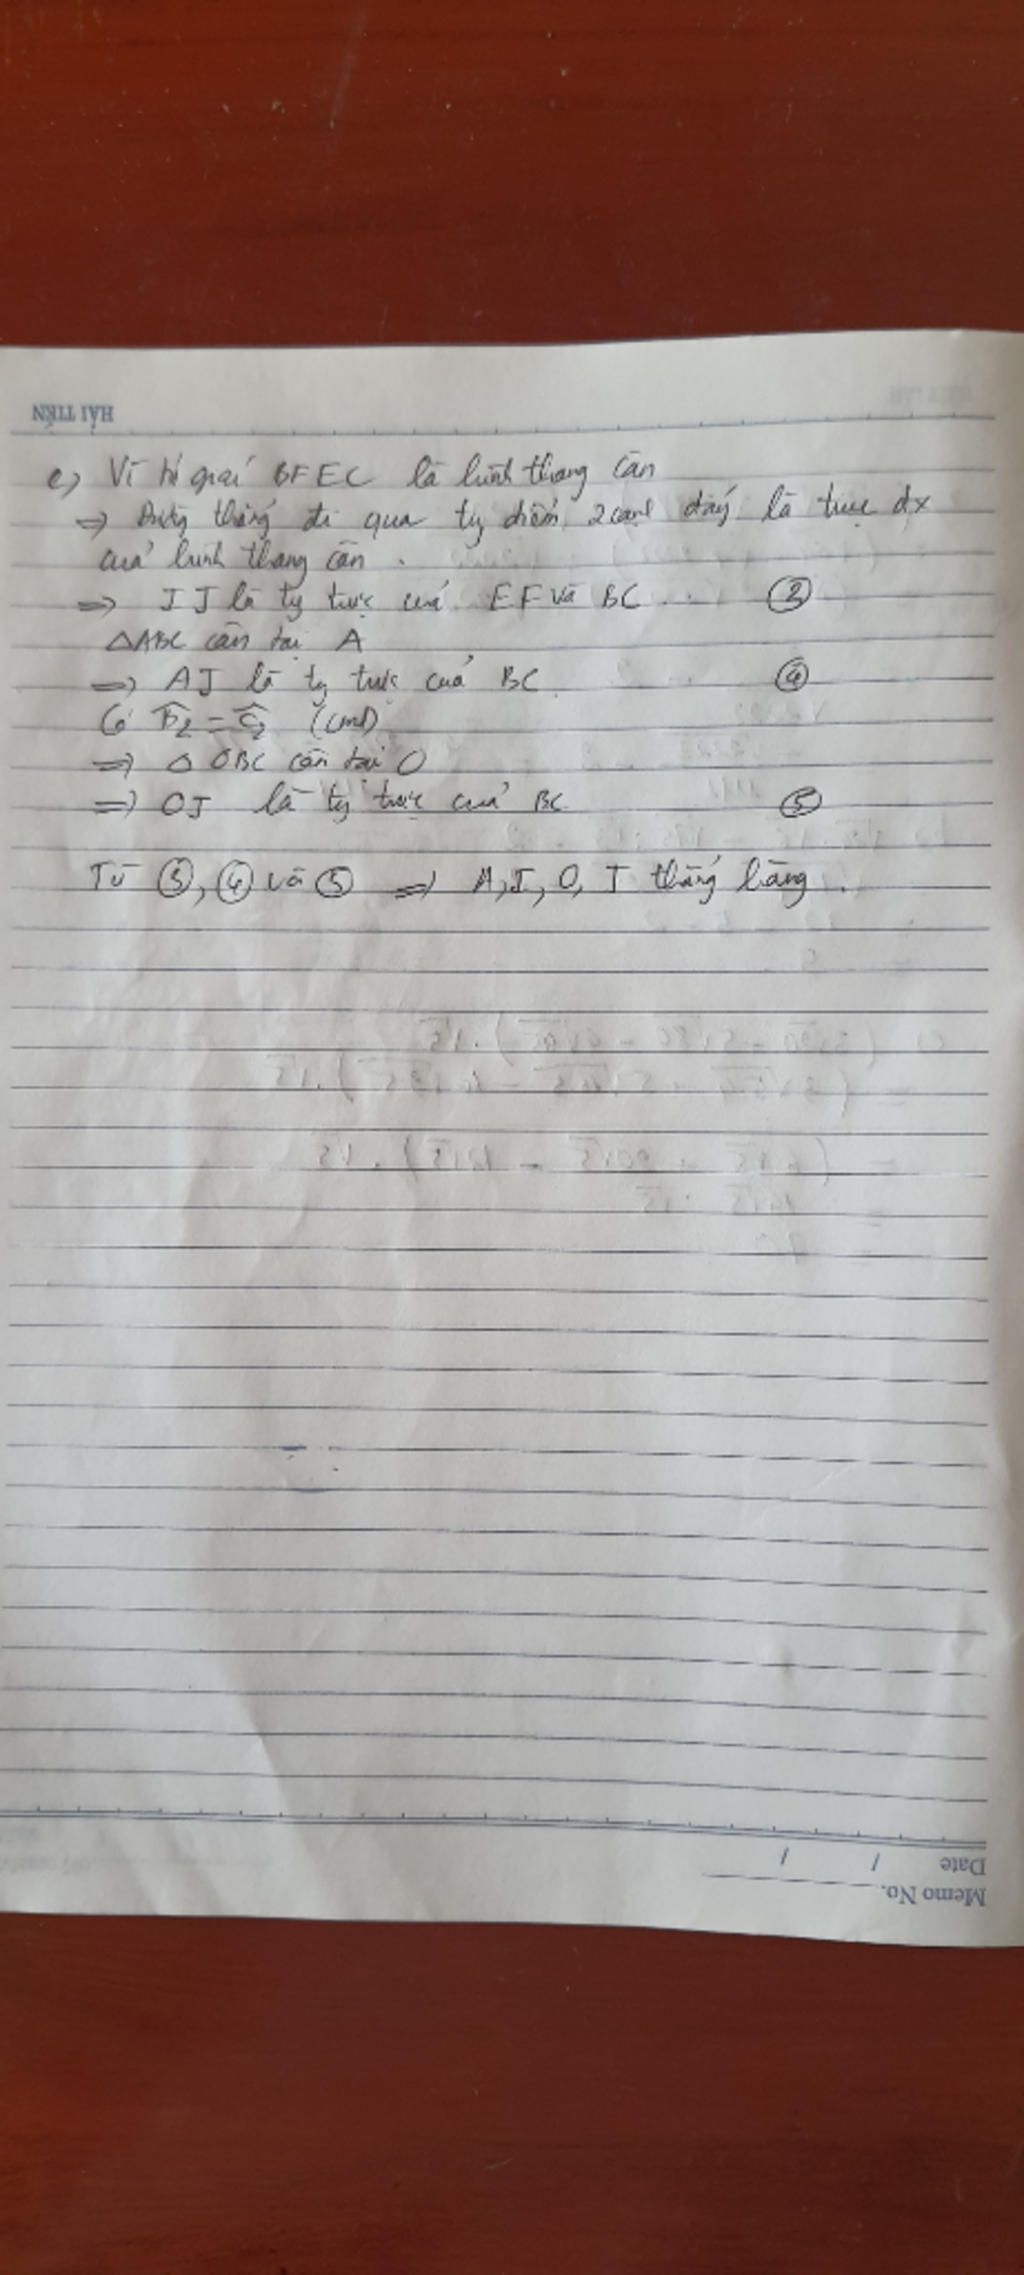 HẢI TIẾN
e) Vì tứ giác BFEC là hình thang cân
=> Đường thẳng đi qua tg điểm 2 cạnh đáy là trục đx
của hình thang cân.
=> IJ là tg trực của EF và BC ③
△ABC cân tại A
=> AJ là tg trực của BC ④
Có B̂₂ = Ĉ₂ (cmt)
=> △ OBC cân tại O
=> OJ là tg trực của BC ⑤
Từ ③, ④ và ⑤ => A, I, O, J thẳng hàng.
Date / /
Memo No.